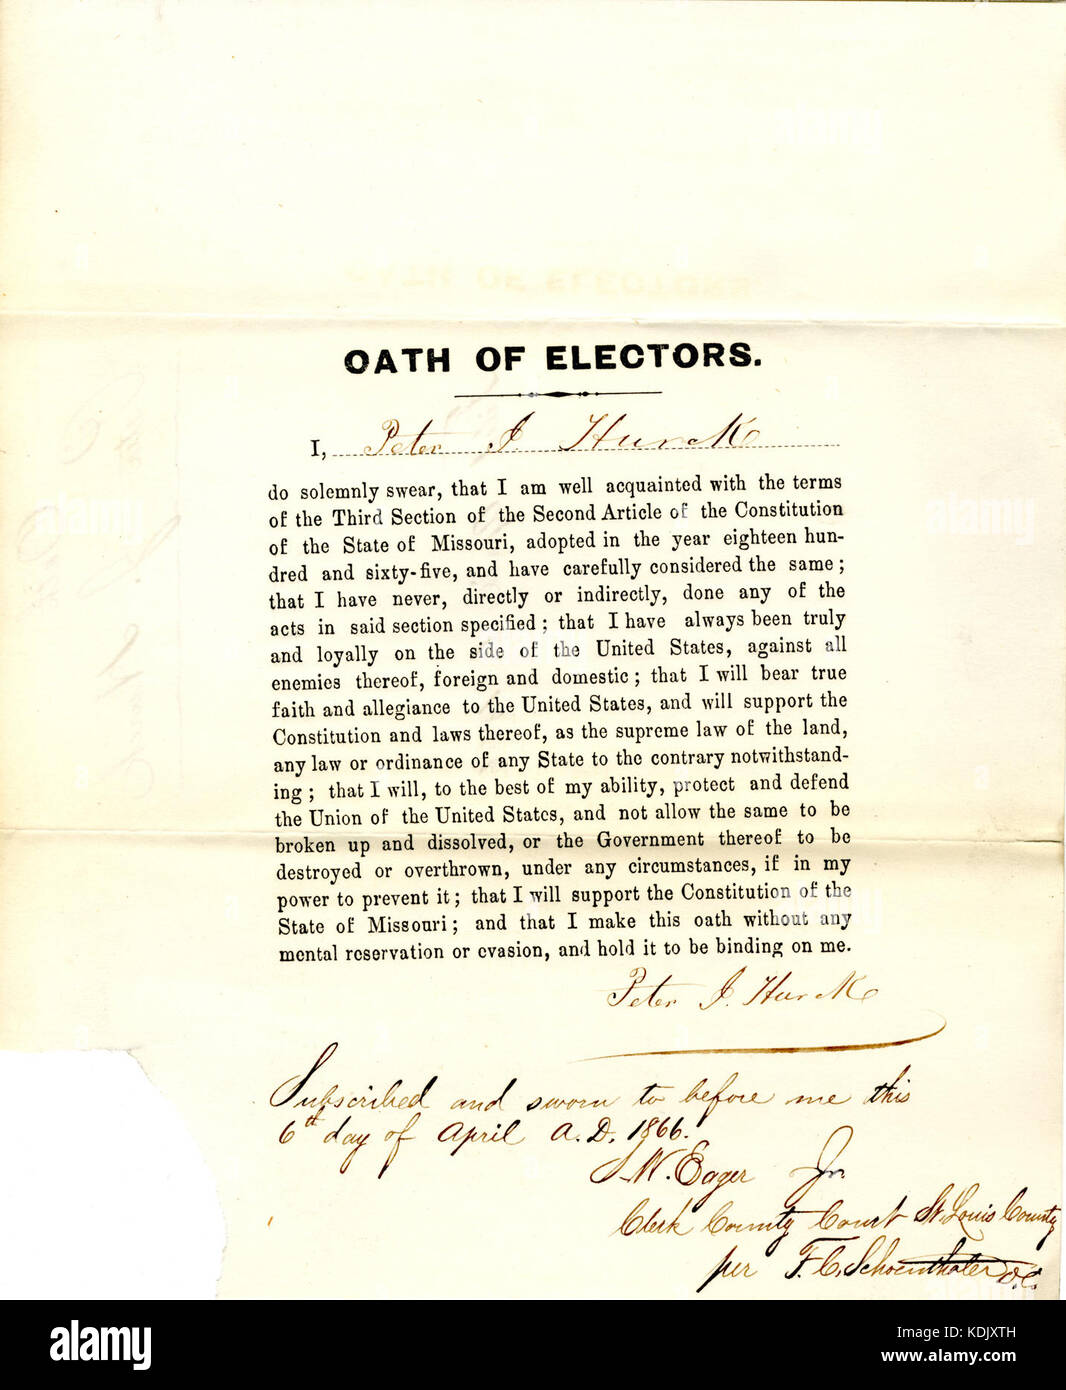 OATH OF ELECTORS.
I, Peter J. Hurck
do solemnly swear, that I am well acquainted with the terms
of the Third Section of the Second Article of the Constitution
of the State of Missouri, adopted in the year eighteen hun-
dred and sixty-five, and have carefully considered the same;
that I have never, directly or indirectly, done any of the
acts in said section specified; that I have always been truly
and loyally on the side of the United States, against all
enemies thereof, foreign and domestic; that I will bear true
faith and allegiance to the United States, and will support the
Constitution and laws thereof, as the supreme law of the land,
any law or ordinance of any State to the contrary notwithstand-
ing; that I will, to the best of my ability, protect and defend
the Union of the United States, and not allow the same to be
broken up and dissolved, or the Government thereof to be
destroyed or overthrown, under any circumstances, if in my
power to prevent it; that I will support the Constitution of the
State of Missouri; and that I make this oath without any
mental reservation or evasion, and hold it to be binding on me.
Peter J. Hurck
Subscribed and sworn to before me this
6th day of April A.D. 1866.
S.W. Eager Jr.
Clerk County Court St. Louis County
per F.C. Schoenthaler D.C.
alamy
Image ID: KDJXTH
www.alamy.com